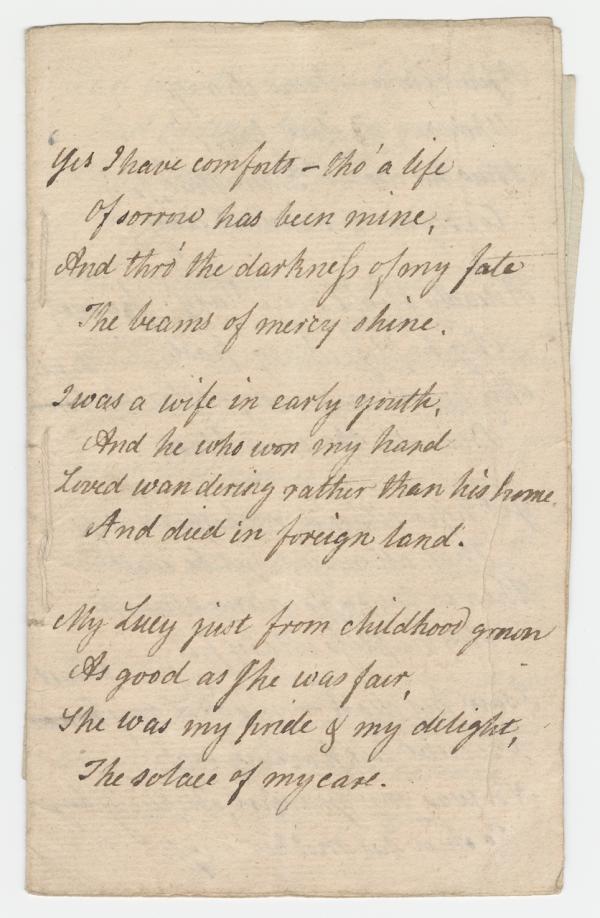 Yes I have comforts – tho' a life
Of sorrow has been mine,
And thro' the darkneſs of my fate
The beams of mercy shine.
I was a wife in early youth,
And he who won my hand
Loved wandering rather than his home.
And died in foreign land.
My Lucy just from childhood grown
As good as She was fair,
She was my pride & my delight,
The solace of my care.